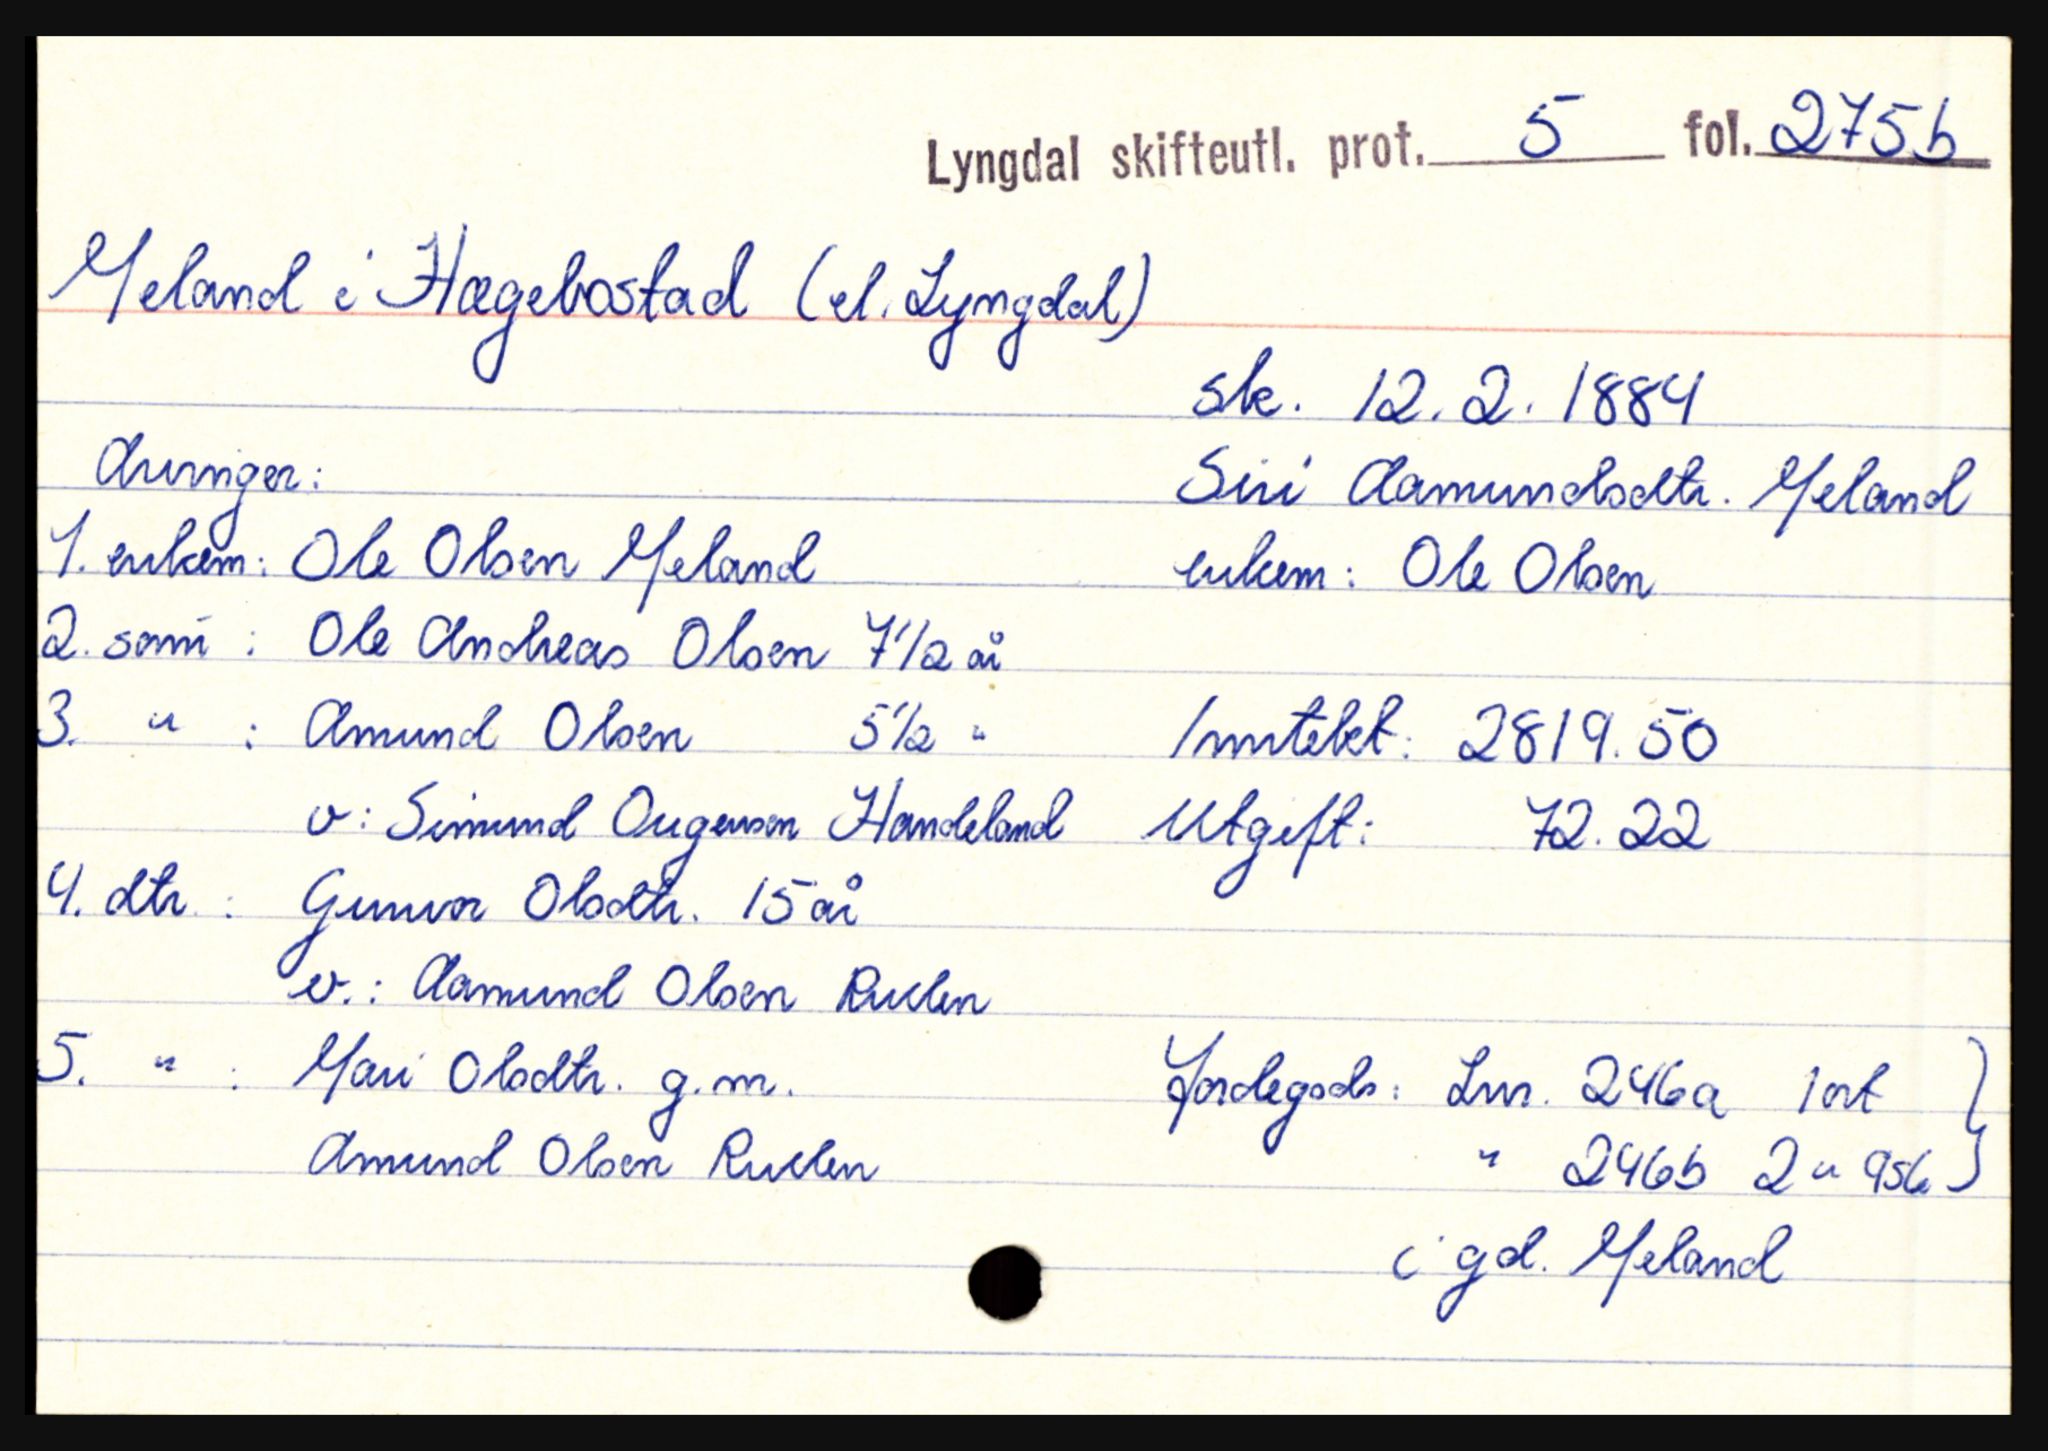 Lyngdal skifteutl. prot. 5 fol. 275b
Meland i Hægebostad (el. Lyngdal)
sk. 12.2.1884
Siri Aamundsdtr. Meland
enkem: Ole Olsen
Arvinger:
1. enkem: Ole Olsen Meland
2. sønn : Ole Andreas Olsen 7 1/2 år
3. " : Amund Olsen 5 1/2 "
v: Simund Ougensen Handeland
4. dtr. : Gunvor Olsdtr. 15 år
v.: Aamund Olsen Rullen
5. " : Mari Olsdtr. g.m.
Amund Olsen Rullen
Inntekt: 2819.50
Utgift: 72.22
Jordegods: Lnr. 246a 1 ort
" 246b 2 "
i gd. Meland